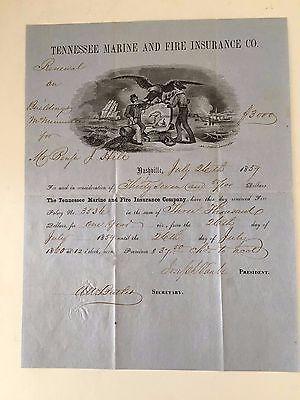 TENNESSEE MARINE AND FIRE INSURANCE CO.
Renewal
on
Buildings $3000
McMinnville
for
Mr J Hill
Nashville, July 26th 1859
For and in consideration of Thirty Seven and Dollars.
The Tennessee Marine and Fire Insurance Company, have this day renewed Fire
Policy No. 3536 in the sum of Three Thousand
Dollars, for One Year viz., from the 26th day of
July 1859 until the 26th day of July
1860 at 12 o'clock, noon Premium $37. to noon
PRESIDENT.
SECRETARY.